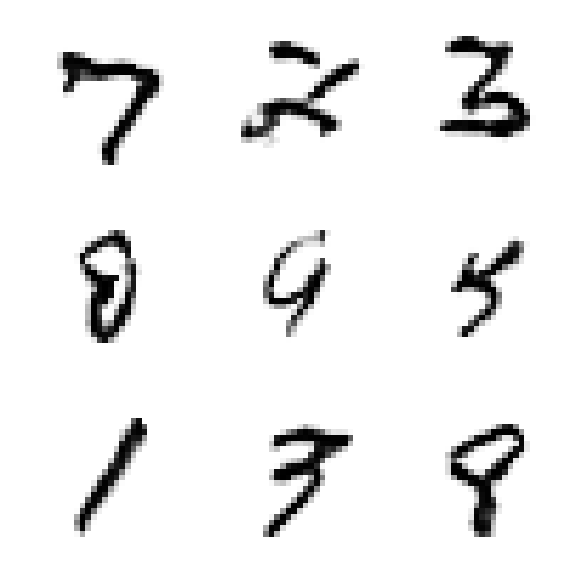 7 2 3
8 9 5
1 3 8